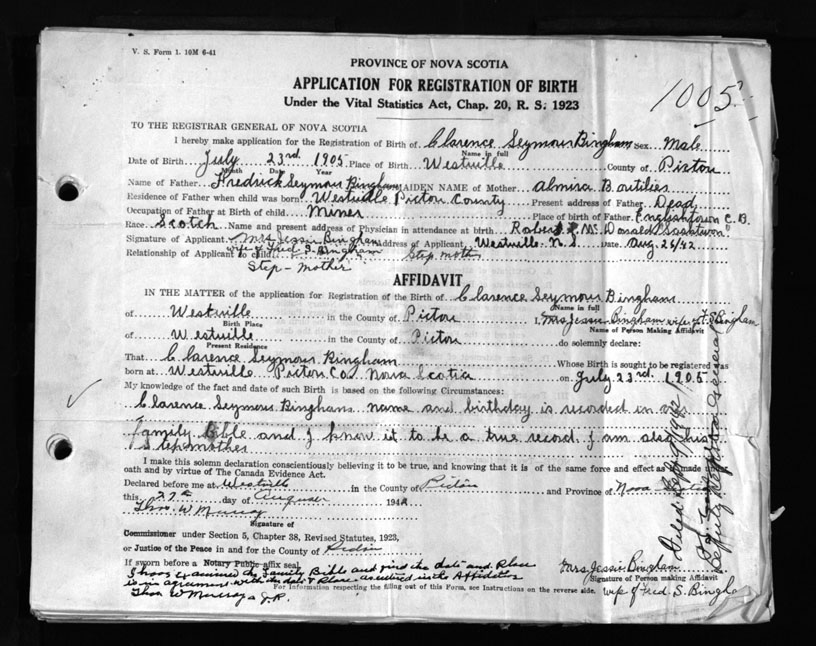 V. S. Form 1. 10M 6-41
PROVINCE OF NOVA SCOTIA
APPLICATION FOR REGISTRATION OF BIRTH
Under the Vital Statistics Act, Chap. 20, R. S. 1923
1005
TO THE REGISTRAR GENERAL OF NOVA SCOTIA
I hereby make application for the Registration of Birth of Clarence Seymour Bingham Sex Male
Name in full
Date of Birth July 23rd 1905 Place of Birth Westville County of Pictou
Month Date Year
Name of Father Fredrick Seymour Bingham MAIDEN NAME of Mother Almira Boutilier
Residence of Father when child was born: Westville Pictou County Present address of Father Dead
Occupation of Father at Birth of child Miner Place of birth of Father Englishtown C.B.
Race Scotch Name and present address of Physician in attendance at birth Robert Mc Donald
Signature of Applicant Mrs Jessie Bingham Address of Applicant Westville N.S. Date Aug 26/42
wife of Fred S. Bingham
Relationship of Applicant to child Step mother
Step-Mother
AFFIDAVIT
IN THE MATTER of the application for Registration of the Birth of Clarence Seymour Bingham
Name in full
of Westville in the County of Pictou I, Mrs Jessie Bingham wife of F.S Bingham
Birth Place Name of Person Making Affidavit
of Westville in the County of Pictou do solemnly declare:
Present Residence
That Clarence Seymour Bingham Whose Birth is sought to be registered was
born at Westville Pictou Co. Nova Scotia on July 23rd 1905
My knowledge of the fact and date of such Birth is based on the following Circumstances:
Clarence Seymour Binghams name and birthday is recorded in our
Family Bible and I know it to be a true record. I am also his
Stepmother
I make this solemn declaration conscientiously believing it to be true, and knowing that it is of the same force and effect as if made upon
oath and by virtue of The Canada Evidence Act.
Declared before me at Westville in the County of Pictou and Province of Nova Scotia
this 27th day of August 1942
Thos. W Murray
Signature of
Commissioner under Section 5, Chapter 38, Revised Statutes, 1923,
or Justice of the Peace in and for the County of Pictou
If sworn before a Notary Public affix seal
I have examined the Family Bible and find the date and Place
is in agreement with the date & Place as used in the Affidavit
Thos W Murray a J.P.
For Information respecting the filling out of this Form, see Instructions on the reverse side.
Mrs Jessie Bingham
Signature of Person making Affidavit
wife of Fred S. Bingham
Filed Sept 9/1942
Deputy Registrar General